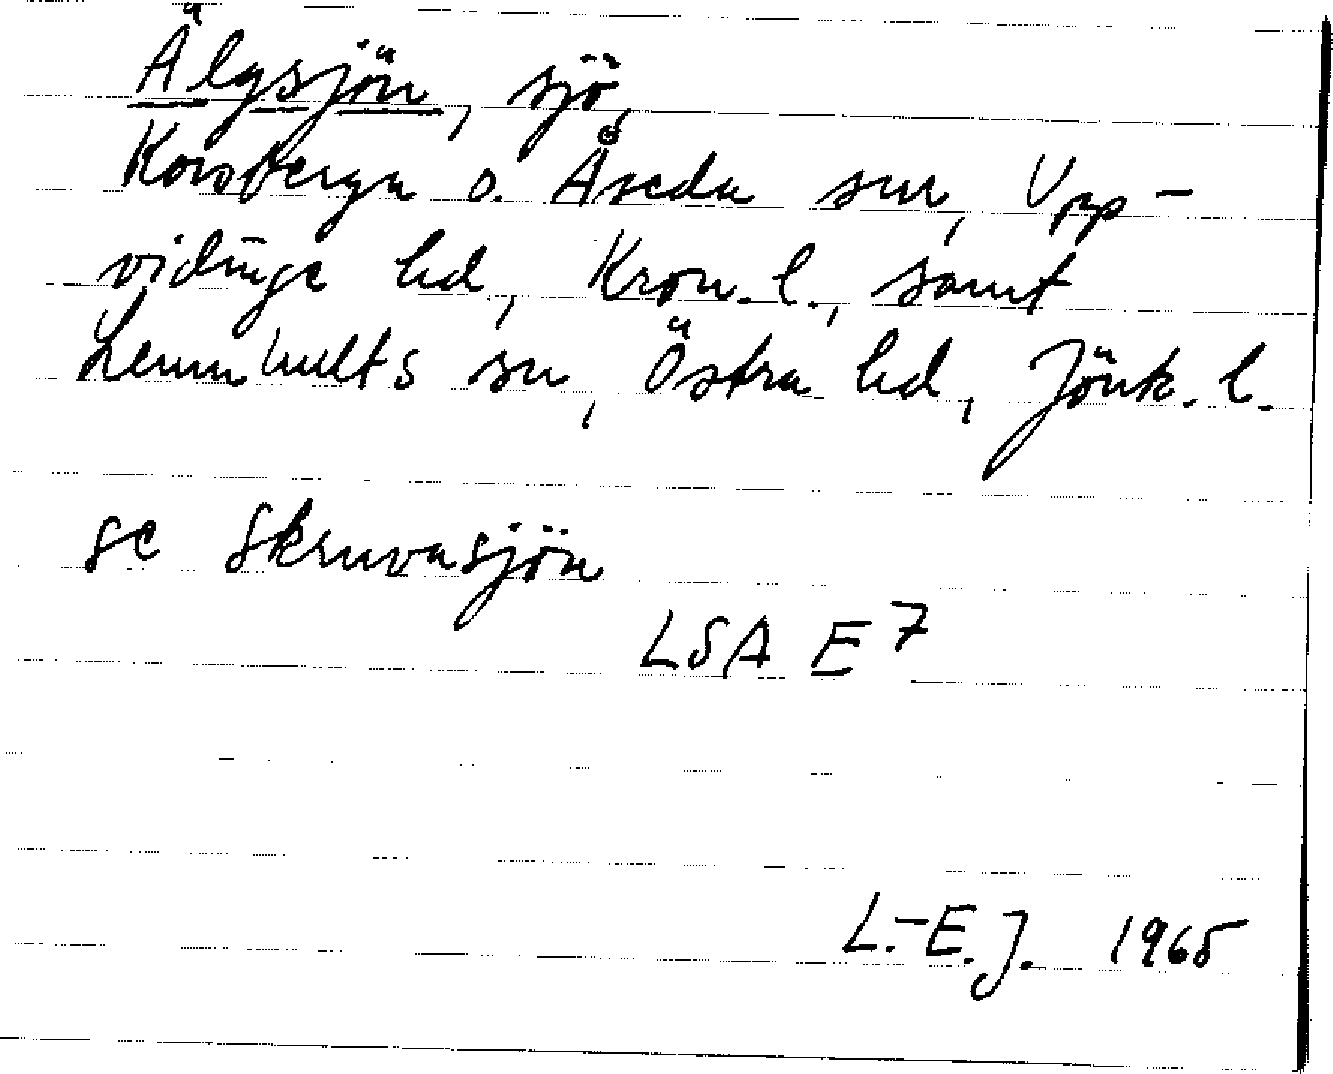 Älgsjön, sjö,
Korsberga o. Åseda snr, Upp-
vidinge hd, Kron. l., samt
Lemnhults sn, Östra hd, Jönk. l.
se Skruvasjön
LSA E7
L.-E.J. 1965